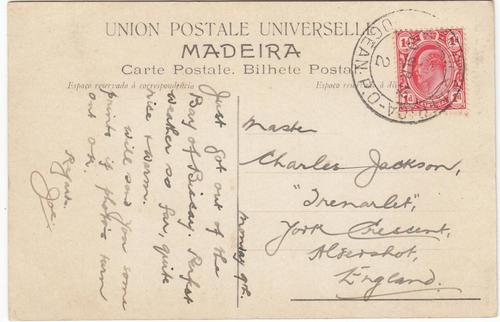 UNION POSTALE UNIVERSELLE
MADEIRA
Carte Postale. Bilhete Postal
Espaço reservado á correspondencia
Espaço reservado á di
OCEAN P.O
2
1d 1d
Monday 9th.
Just got out of the
Bay of Biscay. Perfect
weather so far, quite
nice & warm.
will send you some
prints if photos turn
out o.k.
Regards
Joe.
Master
Charles Jackson,
"Trenarlet",
York Crescent,
Aldershot,
England.